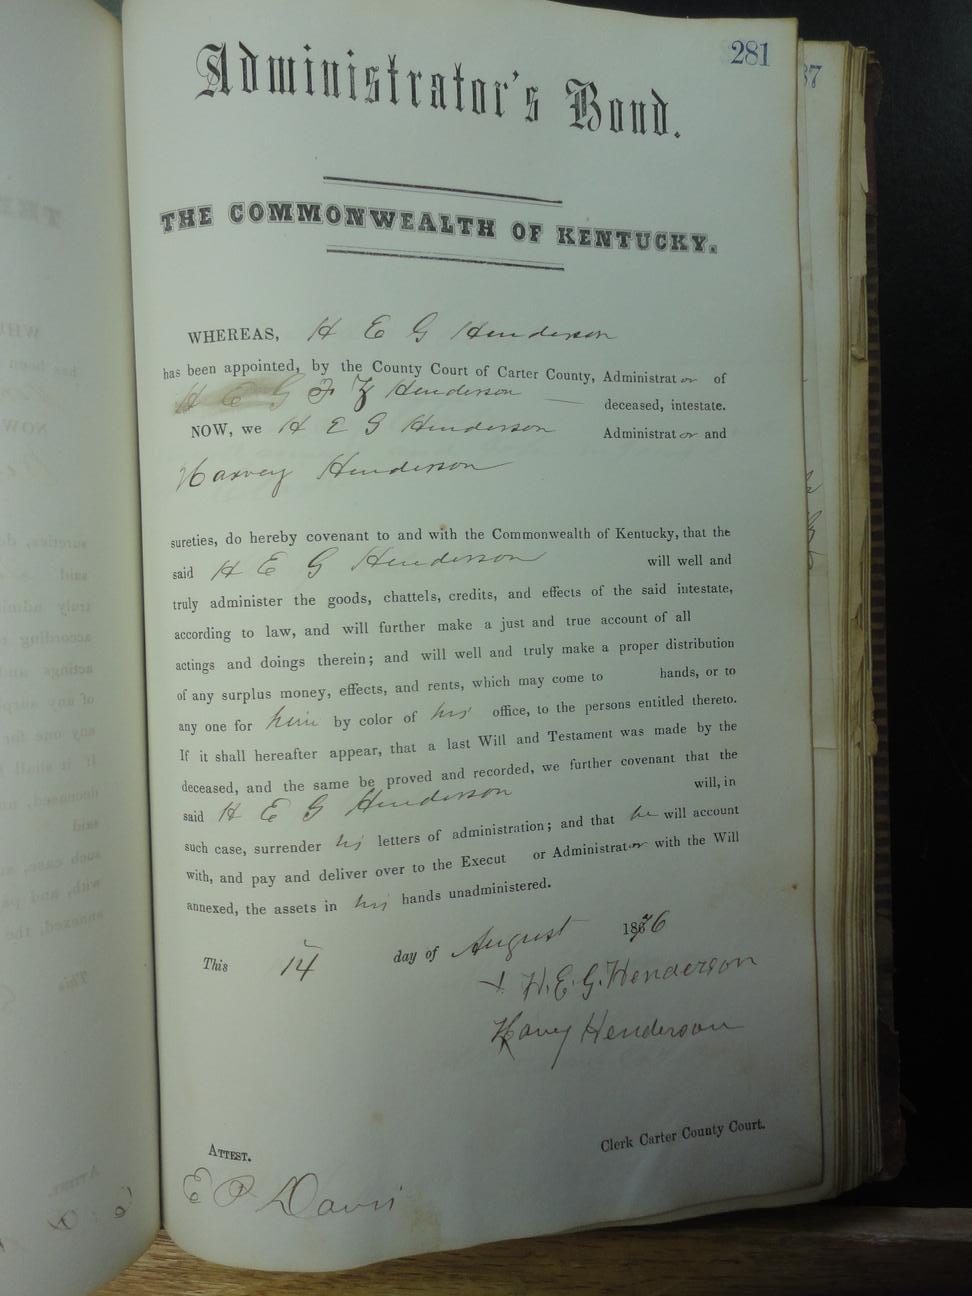 281
Administrator's Bond.
THE COMMONWEALTH OF KENTUCKY.
WHEREAS, H E G Henderson
has been appointed, by the County Court of Carter County, Administrator of
H E G F Z Henderson deceased, intestate.
NOW, we H E G Henderson Administrator and
Harvey Henderson
sureties, do hereby covenant to and with the Commonwealth of Kentucky, that the
said H E G Henderson will well and
truly administer the goods, chattels, credits, and effects of the said intestate,
according to law, and will further make a just and true account of all
actings and doings therein; and will well and truly make a proper distribution
of any surplus money, effects, and rents, which may come to hands, or to
any one for him by color of his office, to the persons entitled thereto.
If it shall hereafter appear, that a last Will and Testament was made by the
deceased, and the same be proved and recorded, we further covenant that the
said H E G Henderson will, in
such case, surrender his letters of administration; and that he will account
with, and pay and deliver over to the Execut or Administrator with the Will
annexed, the assets in his hands unadministered.
This 14 day of August 1876
+ H. E. G. Henderson
Harvy Henderson
ATTEST.
Clerk Carter County Court.
E P Davis
37